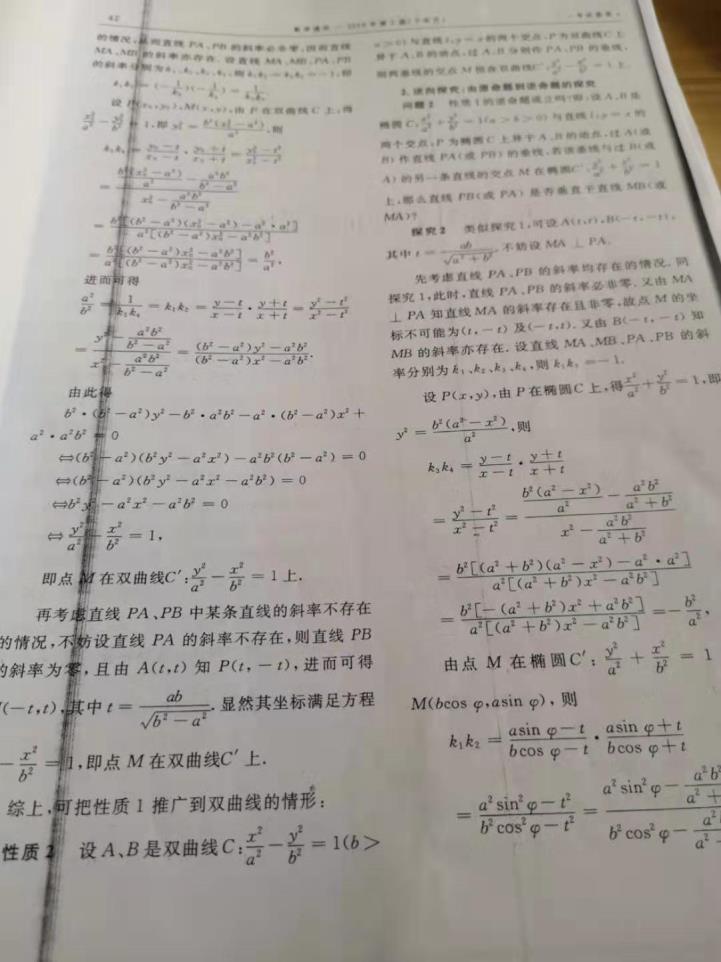 42
的情况,从而直线 PA、PB 的斜率必非零,因而直线
MA、MB 的斜率亦存在. 设直线 MA、MB、PA、PB
的斜率分别为k₁、k₂、k₃、k₄,则 k₁k₃=k₂k₄=-1,即
k₁k₂=(-1/k₃)(-1/k₄)=1/(k₃k₄).
设 P(x₀,y₀),M(x,y),由 P 在双曲线 C 上,得
进而可得
a²/b²=1/(k₃k₄)=k₁k₂=(y-t)/(x-t)·(y+t)/(x+t)=(y²-t²)/(x²-t²)
=(y²-a²b²/(b²-a²))/(x²-a²b²/(b²-a²))=((b²-a²)y²-a²b²)/((b²-a²)x²-a²b²).
由此得
b²·(b²-a²)y²-b²·a²b²-a²·(b²-a²)x²+
a²·a²b²=0
⇔(b²-a²)(b²y²-a²x²)-a²b²(b²-a²)=0
⇔(b²-a²)(b²y²-a²x²-a²b²)=0
⇔b²y²-a²x²-a²b²=0
⇔y²/a²-x²/b²=1,
即点 M 在双曲线C′:y²/a²-x²/b²=1上.
再考虑直线 PA、PB 中某条直线的斜率不存在
的情况,不妨设直线 PA 的斜率不存在,则直线 PB
的斜率为零,且由 A(t,t) 知 P(t,-t),进而可得
(-t,t),其中 t=ab/√(b²-a²).显然其坐标满足方程
-x²/b²=1,即点 M 在双曲线C′上.
综上,可把性质 1 推广到双曲线的情形:
性质2 设 A、B 是双曲线 C:x²/a²-y²/b²=1(b>
a>0)与直线 l:y=x的两个交点,P为双曲线C上
异于 A、B 的动点,过 A、B 分别作 PA、PB 的垂线,
则两垂线的交点 M 恒在双曲线C′:y²/a²-x²/b²=1上.
2. 逆向探究:由原命题到逆命题的探究
问题2 性质1的逆命题成立吗?即:设A、B是
椭圆 C:x²/a²+y²/b²=1(a>b>0)与直线 l:y=x的
两个交点,P 为椭圆 C 上异于 A、B 的动点,过 A(或
B)作直线 PA(或 PB)的垂线,若该垂线与过 B(或
A)的另一条直线的交点 M 在椭圆C′:y²/a²+x²/b²=1
上,那么直线 PB(或 PA)是否垂直于直线 MB(或
MA)?
探究2 类似探究1,可设 A(t,t),B(-t,-t),
其中 t=ab/√(a²+b²).不妨设 MA⊥PA.
先考虑直线 PA、PB 的斜率均存在的情况.同
探究1,此时,直线 PA、PB 的斜率必非零.又由 MA
⊥PA 知直线 MA 的斜率存在且非零,故点 M 的坐
标不可能为(t,-t)及(-t,t).又由 B(-t,-t) 知
MB 的斜率亦存在.设直线 MA、MB、PA、PB 的斜
率分别为 k₁、k₂、k₃、k₄,则 k₁k₃=-1.
设 P(x,y),由 P 在椭圆C上,得x²/a²+y²/b²=1,即
y²=b²(a²-x²)/a²,则
k₃k₄=(y-t)/(x-t)·(y+t)/(x+t)
=(y²-t²)/(x²-t²)=(b²(a²-x²)/a²-a²b²/(a²+b²))/(x²-a²b²/(a²+b²))
=b²[(a²+b²)(a²-x²)-a²·a²]/a²[(a²+b²)x²-a²b²]
=b²[-(a²+b²)x²+a²b²]/a²[(a²+b²)x²-a²b²]=-b²/a²,
由点 M 在椭圆C′:y²/a²+x²/b²=1
M(bcos φ,asin φ),则
k₁k₂=(asin φ-t)/(bcos φ-t)·(asin φ+t)/(bcos φ+t)
=(a²sin²φ-t²)/(b²cos²φ-t²)=